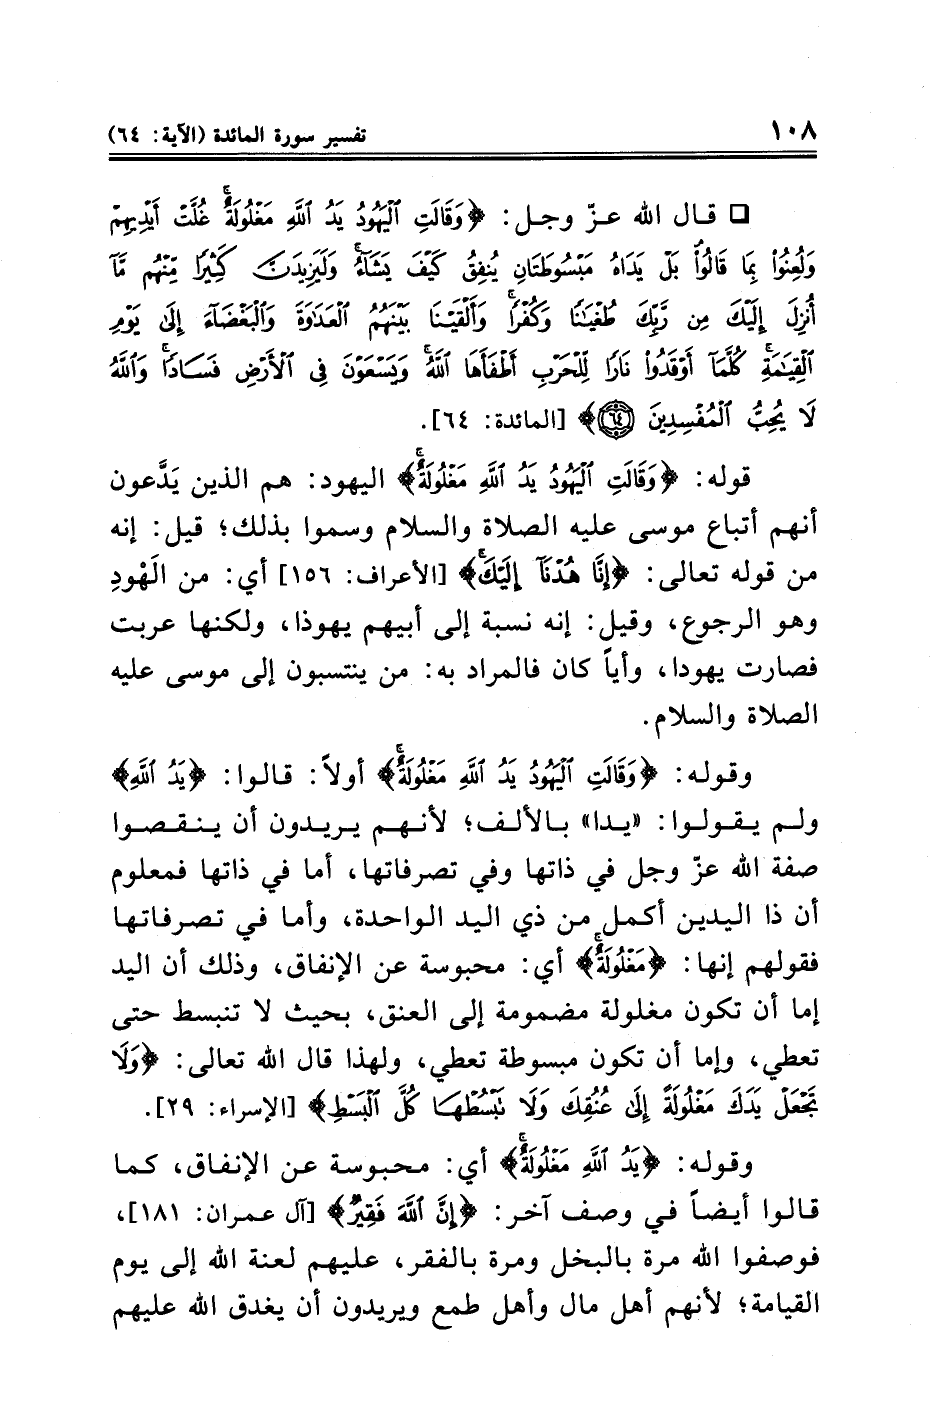 ١٠٨
تفسير سورة المائدة (الآية: ٦٤)
❑ قال الله عزّ وجل: ﴿وَقَالَتِ ٱلْيَهُودُ يَدُ ٱللَّهِ مَغْلُولَةٌ ۚ غُلَّتْ أَيْدِيهِمْ
وَلُعِنُوا۟ بِمَا قَالُوا۟ ۘ بَلْ يَدَاهُ مَبْسُوطَتَانِ يُنفِقُ كَيْفَ يَشَآءُ ۚ وَلَيَزِيدَنَّ كَثِيرًا مِّنْهُم مَّآ
أُنزِلَ إِلَيْكَ مِن رَّبِّكَ طُغْيَـٰنًا وَكُفْرًا ۚ وَأَلْقَيْنَا بَيْنَهُمُ ٱلْعَدَاوَةَ وَٱلْبَغْضَآءَ إِلَىٰ يَوْمِ
ٱلْقِيَـٰمَةِ ۚ كُلَّمَآ أَوْقَدُوا۟ نَارًا لِّلْحَرْبِ أَطْفَأَهَا ٱللَّهُ ۚ وَيَسْعَوْنَ فِى ٱلْأَرْضِ فَسَادًا ۚ وَٱللَّهُ
لَا يُحِبُّ ٱلْمُفْسِدِينَ ٦٤﴾ [المائدة: ٦٤].
قوله: ﴿وَقَالَتِ ٱلْيَهُودُ يَدُ ٱللَّهِ مَغْلُولَةٌ ۚ﴾ اليهود: هم الذين يَدَّعون
أنهم أتباع موسى عليه الصلاة والسلام وسموا بذلك؛ قيل: إنه
من قوله تعالى: ﴿إِنَّا هُدْنَآ إِلَيْكَ ۚ﴾ [الأعراف: ١٥٦] أي: من الَهْودِ
وهو الرجوع، وقيل: إنه نسبة إلى أبيهم يهوذا، ولكنها عربت
فصارت يهودا، وأياً كان فالمراد به: من ينتسبون إلى موسى عليه
الصلاة والسلام.
وقوله: ﴿وَقَالَتِ ٱلْيَهُودُ يَدُ ٱللَّهِ مَغْلُولَةٌ ۚ﴾ أولاً: قالوا: ﴿يَدُ ٱللَّهِ﴾
ولم يقولوا: «يدا» بالألف؛ لأنهم يريدون أن ينقصوا
صفة الله عزّ وجل في ذاتها وفي تصرفاتها، أما في ذاتها فمعلوم
أن ذا اليدين أكمل من ذي اليد الواحدة، وأما في تصرفاتها
فقولهم إنها: ﴿مَغْلُولَةٌ ۚ﴾ أي: محبوسة عن الإنفاق، وذلك أن اليد
إما أن تكون مغلولة مضمومة إلى العنق، بحيث لا تنبسط حتى
تعطي، وإما أن تكون مبسوطة تعطي، ولهذا قال الله تعالى: ﴿وَلَا
تَجْعَلْ يَدَكَ مَغْلُولَةً إِلَىٰ عُنُقِكَ وَلَا تَبْسُطْهَا كُلَّ ٱلْبَسْطِ﴾ [الإسراء: ٢٩].
وقوله: ﴿يَدُ ٱللَّهِ مَغْلُولَةٌ ۚ﴾ أي: محبوسة عن الإنفاق، كما
قالوا أيضاً في وصف آخر: ﴿إِنَّ ٱللَّهَ فَقِيرٌ﴾ [آل عمران: ١٨١]،
فوصفوا الله مرة بالبخل ومرة بالفقر، عليهم لعنة الله إلى يوم
القيامة؛ لأنهم أهل مال وأهل طمع ويريدون أن يغدق الله عليهم